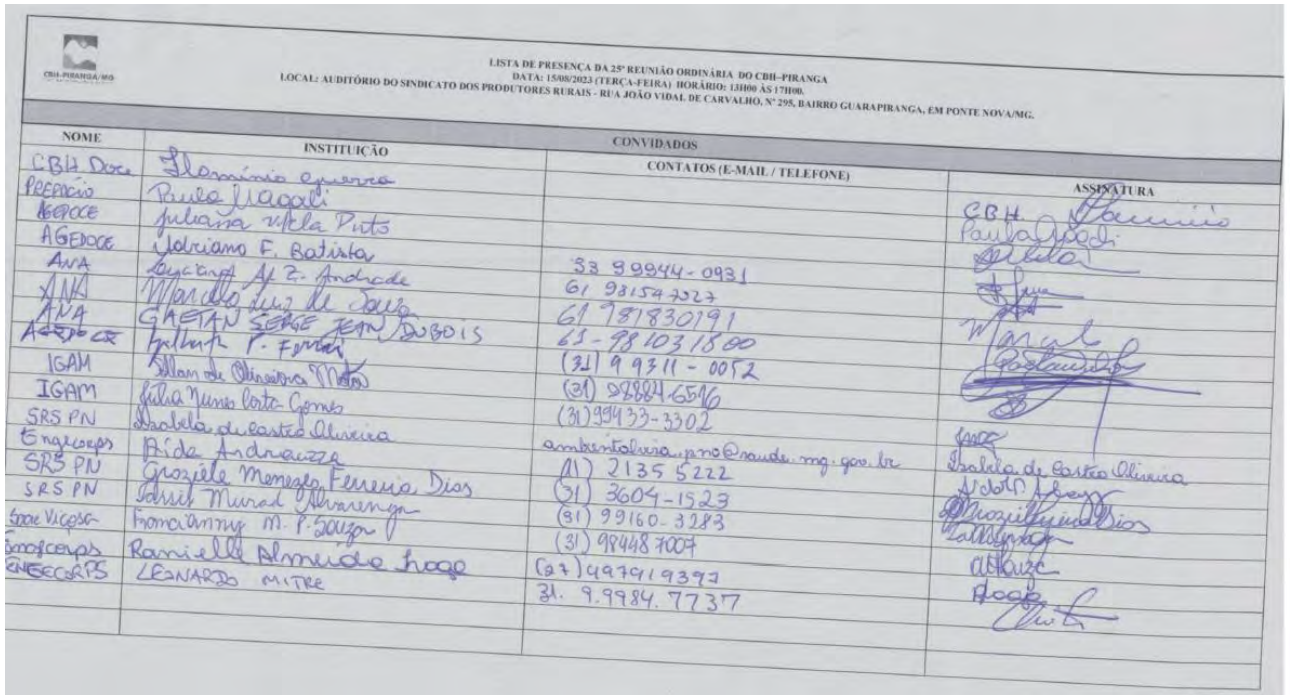 CBH-PIRANGA/MG
LISTA DE PRESENÇA DA 25ª REUNIÃO ORDINÁRIA DO CBH–PIRANGA
DATA: 15/08/2023 (TERÇA-FEIRA) HORÁRIO: 13H00 ÀS 17H00.
LOCAL: AUDITÓRIO DO SINDICATO DOS PRODUTORES RURAIS - RUA JOÃO VIDAL DE CARVALHO, Nº 295, BAIRRO GUARAPIRANGA, EM PONTE NOVA/MG.
CONVIDADOS
NOME INSTITUIÇÃO CONTATOS (E-MAIL / TELEFONE) ASSINATURA
CBH Doce Flamínio Guerra CBH
Paula
AGEDOCE Juliana Vilela Pinto
AGEDOCE Adriano F. Batista 33 99944-0931
ANA Andrade 61 981547027
ANA Marcelo Luiz de Souza 61 981830191 Marcelo
ANA GAETAN SERGE JEAN DUBOIS 61-981031800
AGEDOCE (31) 9 9311-0052
IGAM Allan de Oliveira Mota (31) 98884-6516
IGAM Júlia Nunes Costa Gomes (31) 99433-3302
SRS PN Izabela de Castro Oliveira Izabela de Castro Oliveira
Engecorps Aída Andreazza (11) 2135 5222
SRS PN Graziele Menezes Ferreira Dias (31) 3604-1523
SRS PN Murad Alvarenga (31) 99160-3283
Saae Viçosa M. P. Souza (31) 984487007
Engecorps Ranielle Almeida
ENGECORPS LEONARDO MITRE 31. 9.9984.7737